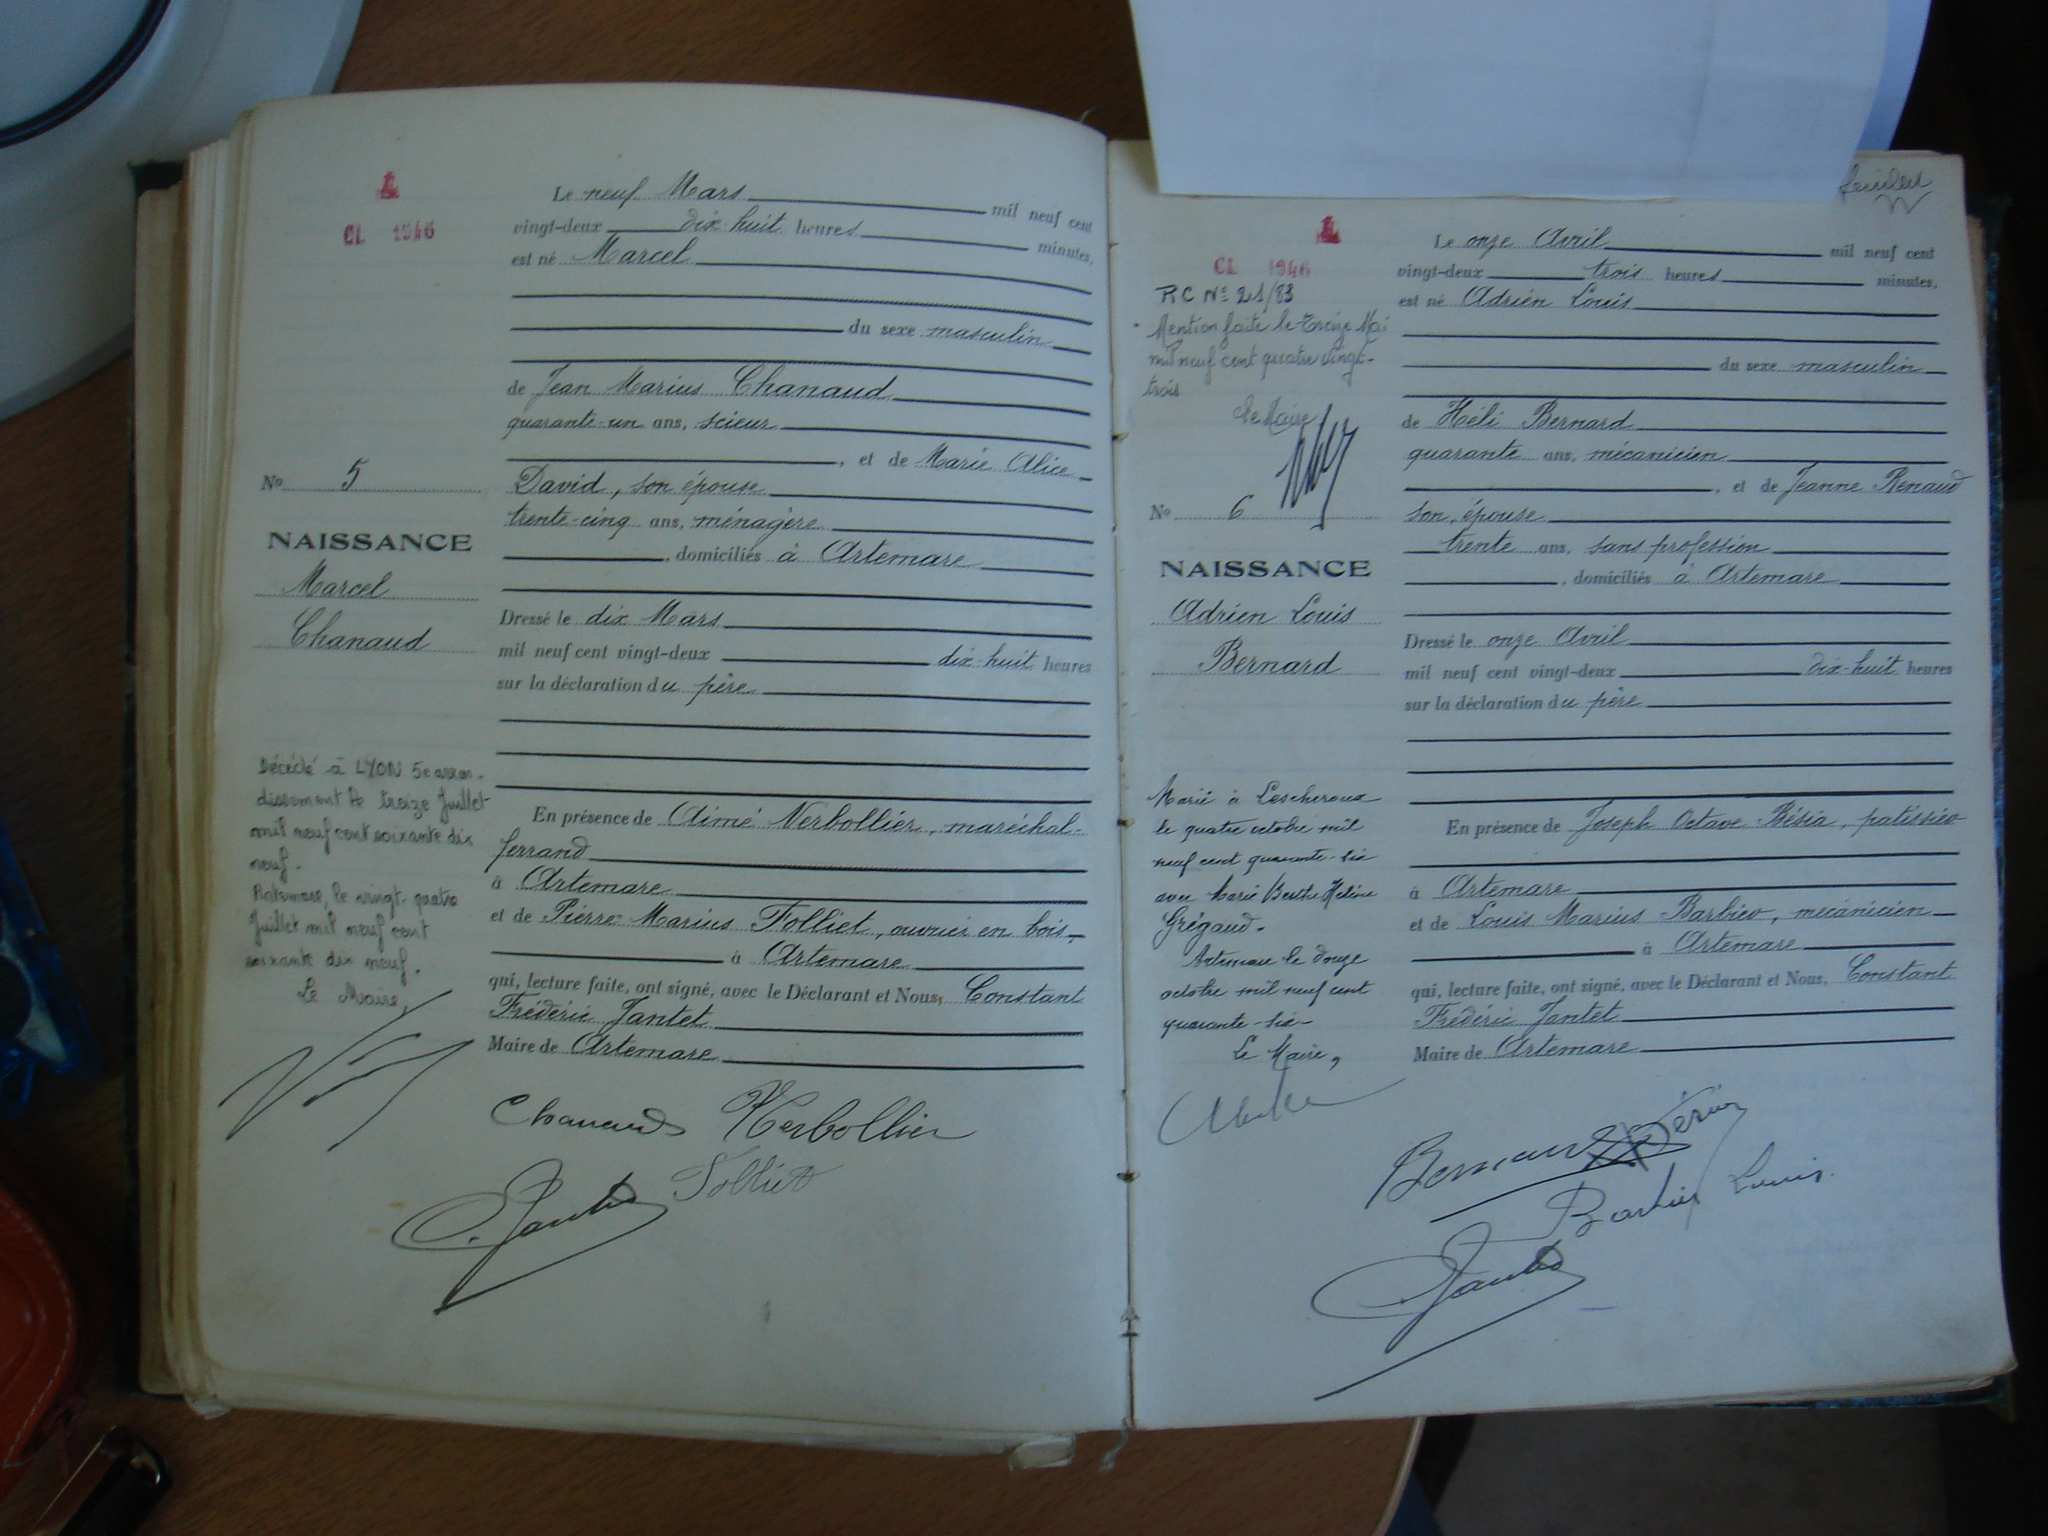 CL 1946
Le neuf Mars mil neuf cent
vingt-deux dix-huit heures minutes,
est né Marcel
du sexe masculin
de Jean Marius Chanaud
quarante-un ans, scieur
, et de Marie Alice
No 5
David, son épouse
trente-cinq ans, ménagère
NAISSANCE
, domiciliés à Artemare
Marcel
Chanaud
Dressé le dix Mars
mil neuf cent vingt-deux dix-huit heures
sur la déclaration du père
Décédé à LYON 5e arron-
dissement le treize Juillet
mil neuf cent soixante dix
neuf.
Artemare, le vingt-quatre
Juillet mil neuf cent
soixante dix neuf.
Le Maire,
En présence de Aimé Verbollier, maréchal-
ferrand
à Artemare
et de Pierre Marius Tolliet, ouvrier en bois,
à Artemare
qui, lecture faite, ont signé, avec le Déclarant et Nous, Constant
Frédéric Jantet
Maire de Artemare
Chanaud Verbollier
Tolliet
Jantet
CL 1946
RC No 21/83
Mention faite le treize Mai
mil neuf cent quatre vingt-
trois
Le Maire
Le onze Avril mil neuf cent
vingt-deux trois heures minutes,
est né Adrien Louis
du sexe masculin
de Héli Bernard
quarante ans, mécanicien
, et de Jeanne Renaud
No 6
son épouse
trente ans, sans profession
NAISSANCE
, domiciliés à Artemare
Adrien Louis
Bernard
Dressé le onze Avril
mil neuf cent vingt-deux dix-huit heures
sur la déclaration du père
Marié à Lescheroux
le quatre octobre mil
neuf cent quarante-six
avec Marie Berthe Hélène
Grégaud.
Artemare le douze
octobre mil neuf cent
quarante-six
Le Maire,
En présence de Joseph Octave Bésia, patissier
à Artemare
et de Louis Marius Barbier, mécanicien
à Artemare
qui, lecture faite, ont signé, avec le Déclarant et Nous, Constant
Frédéric Jantet
Maire de Artemare
Bernard
Barbier Louis
Jantet